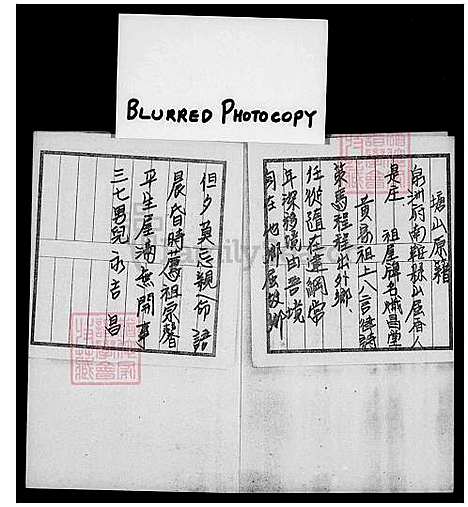 BLURRED PHOTOCOPY
塘山原籍
泉州府南
是庄 祖屋牌名 昌堂
黃 祖上八言律詩
策馬程程出外鄉
任從隨在遠綱常
年深移境由吾境
身在他鄉屈故鄉
但夕莫忘親命語
晨昏時薦祖宗馨
平生屋滿無閑事
三七男兒永吉昌